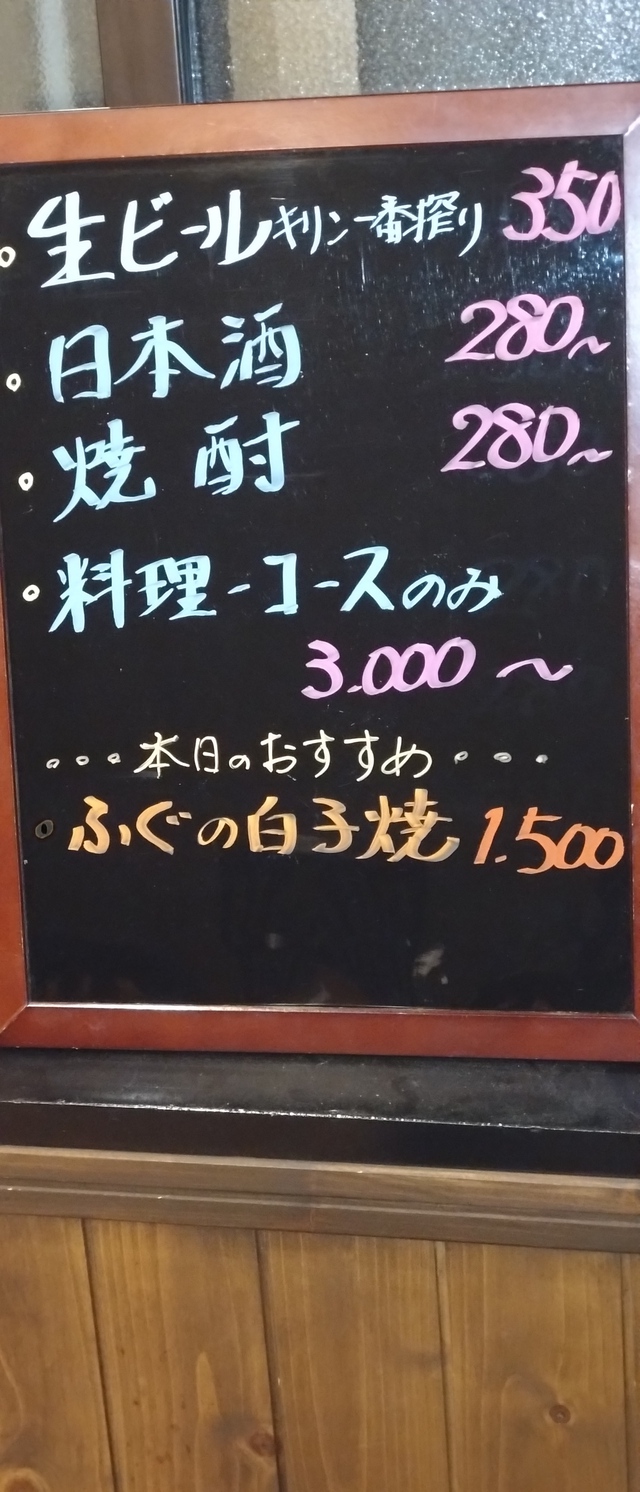 ○ 生ビール キリン一番搾り 350
○ 日本酒 280~
○ 焼酎 280~
○ 料理-コースのみ
3.000 ~
。。。本日のおすすめ。。。
○ ふぐの白子焼 1.500